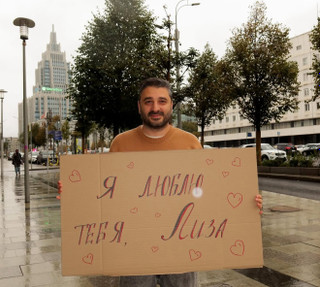 Я ЛЮБЛЮ
ТЕБЯ, Лиза